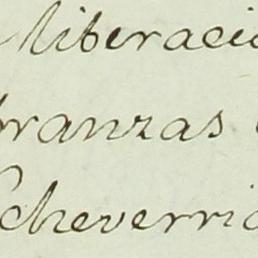 Miberacio
branzas
Echeverria